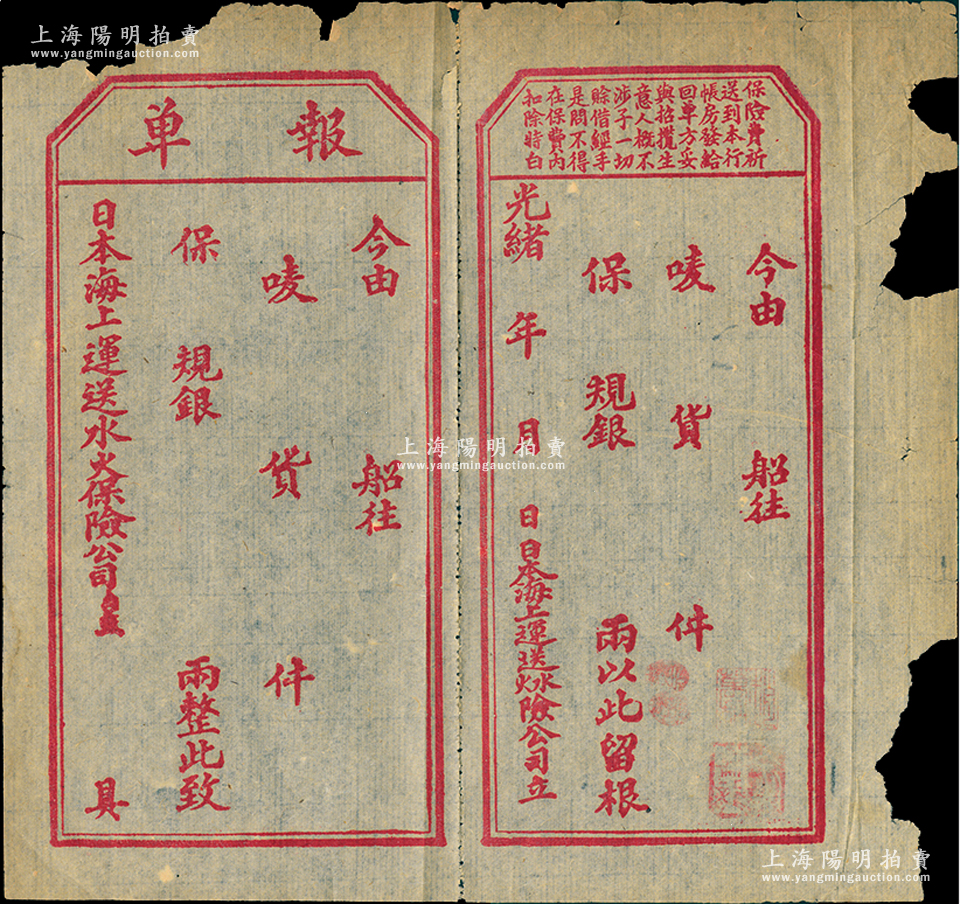 上海陽明拍賣
www.yangmingauction.com
保險費祈
送到本行
帳房發給
回單方妥
與招攬生
意人概不
涉子一切
賒借經手
是問不得
在保費內
扣除特白
今由 船往
嘜 貨 件
保 規銀 兩以此留根
光緒 年 月 日 日本海上運送水火險公司立
報單
今由 船往
嘜 貨 件
保 規銀 兩整此致
日本海上運送水火保險公司 具
上海陽明拍賣
www.yangmingauction.com
上海陽明拍賣
www.yangmingauction.com